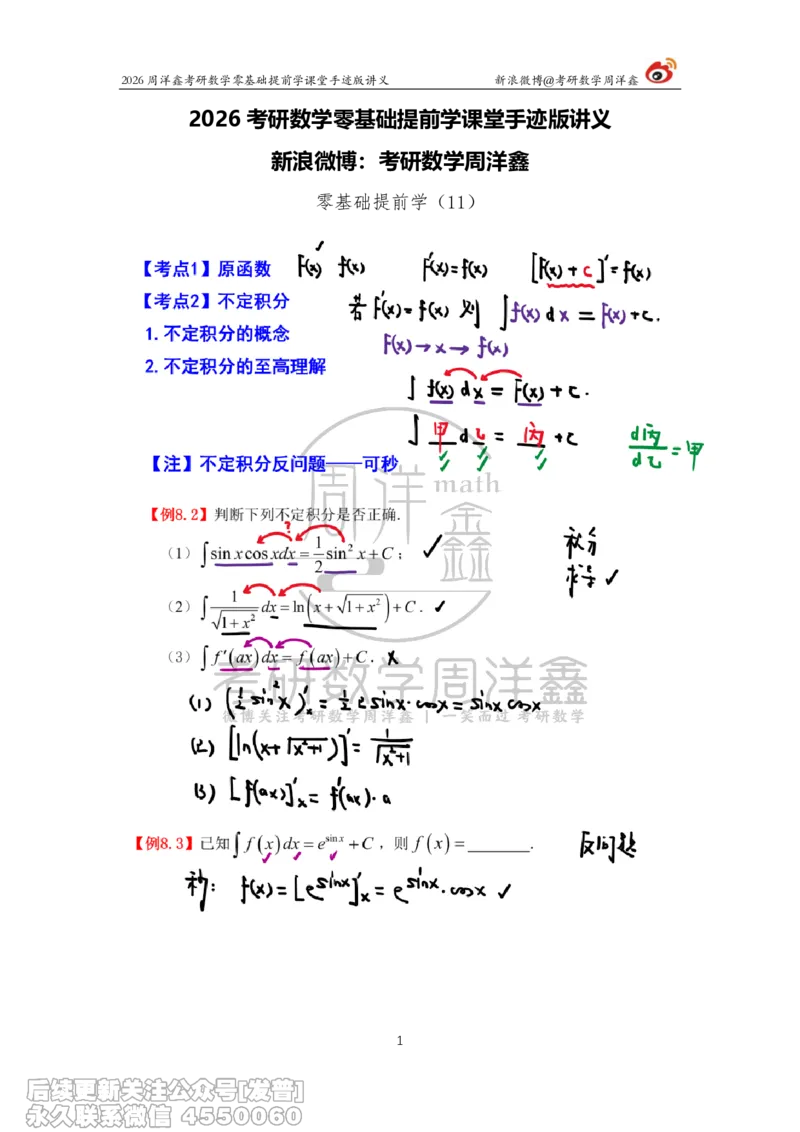 2026 周洋鑫考研数学零基础提前学课堂手迹版讲义 新浪微博@考研数学周洋鑫
2026 考研数学零基础提前学课堂手迹版讲义
新浪微博：考研数学周洋鑫
零基础提前学（11）
【考点1】原函数 F(x) f(x) F'(x)=f(x) [F(x)+C]'=f(x)
【考点2】不定积分 若 F'(x)=f(x) 则 ∫f(x)dx=F(x)+C.
1.不定积分的概念
F(x)→x→f(x)
2.不定积分的至高理解
∫f(x)dx=F(x)+C.
∫甲d乙=丙+C d丙/d乙=甲
【注】不定积分反问题——可秒
周洋鑫math
【例8.2】判断下列不定积分是否正确.
（1）∫sin x cos xdx = 1/2 sin² x + C； ✓ 积分
求导 ✓
（2）∫ 1/√(1+x²) dx = ln(x+√(1+x²)) + C. ✓
（3）∫f'(ax)dx = f(ax)+C. ✗
考研数学周洋鑫
微博关注考研数学周洋鑫 | 一笑而过 考研数学
(1) (½sin²x)'ₓ = ½·2sinx·cosx = sinx cosx
(2) [ln(x+√(x²+1))]' = 1/√(x²+1)
(3) [f(ax)]'ₓ = f'(ax)·a
【例8.3】已知∫f(x)dx = e^(sin x) + C，则 f(x)=________. 反问题
秒: f(x)=[e^(sinx)]'ₓ = e^(sinx)·cosx ✓
1
后续更新关注公众号[发普]
永久联系微信 4550060